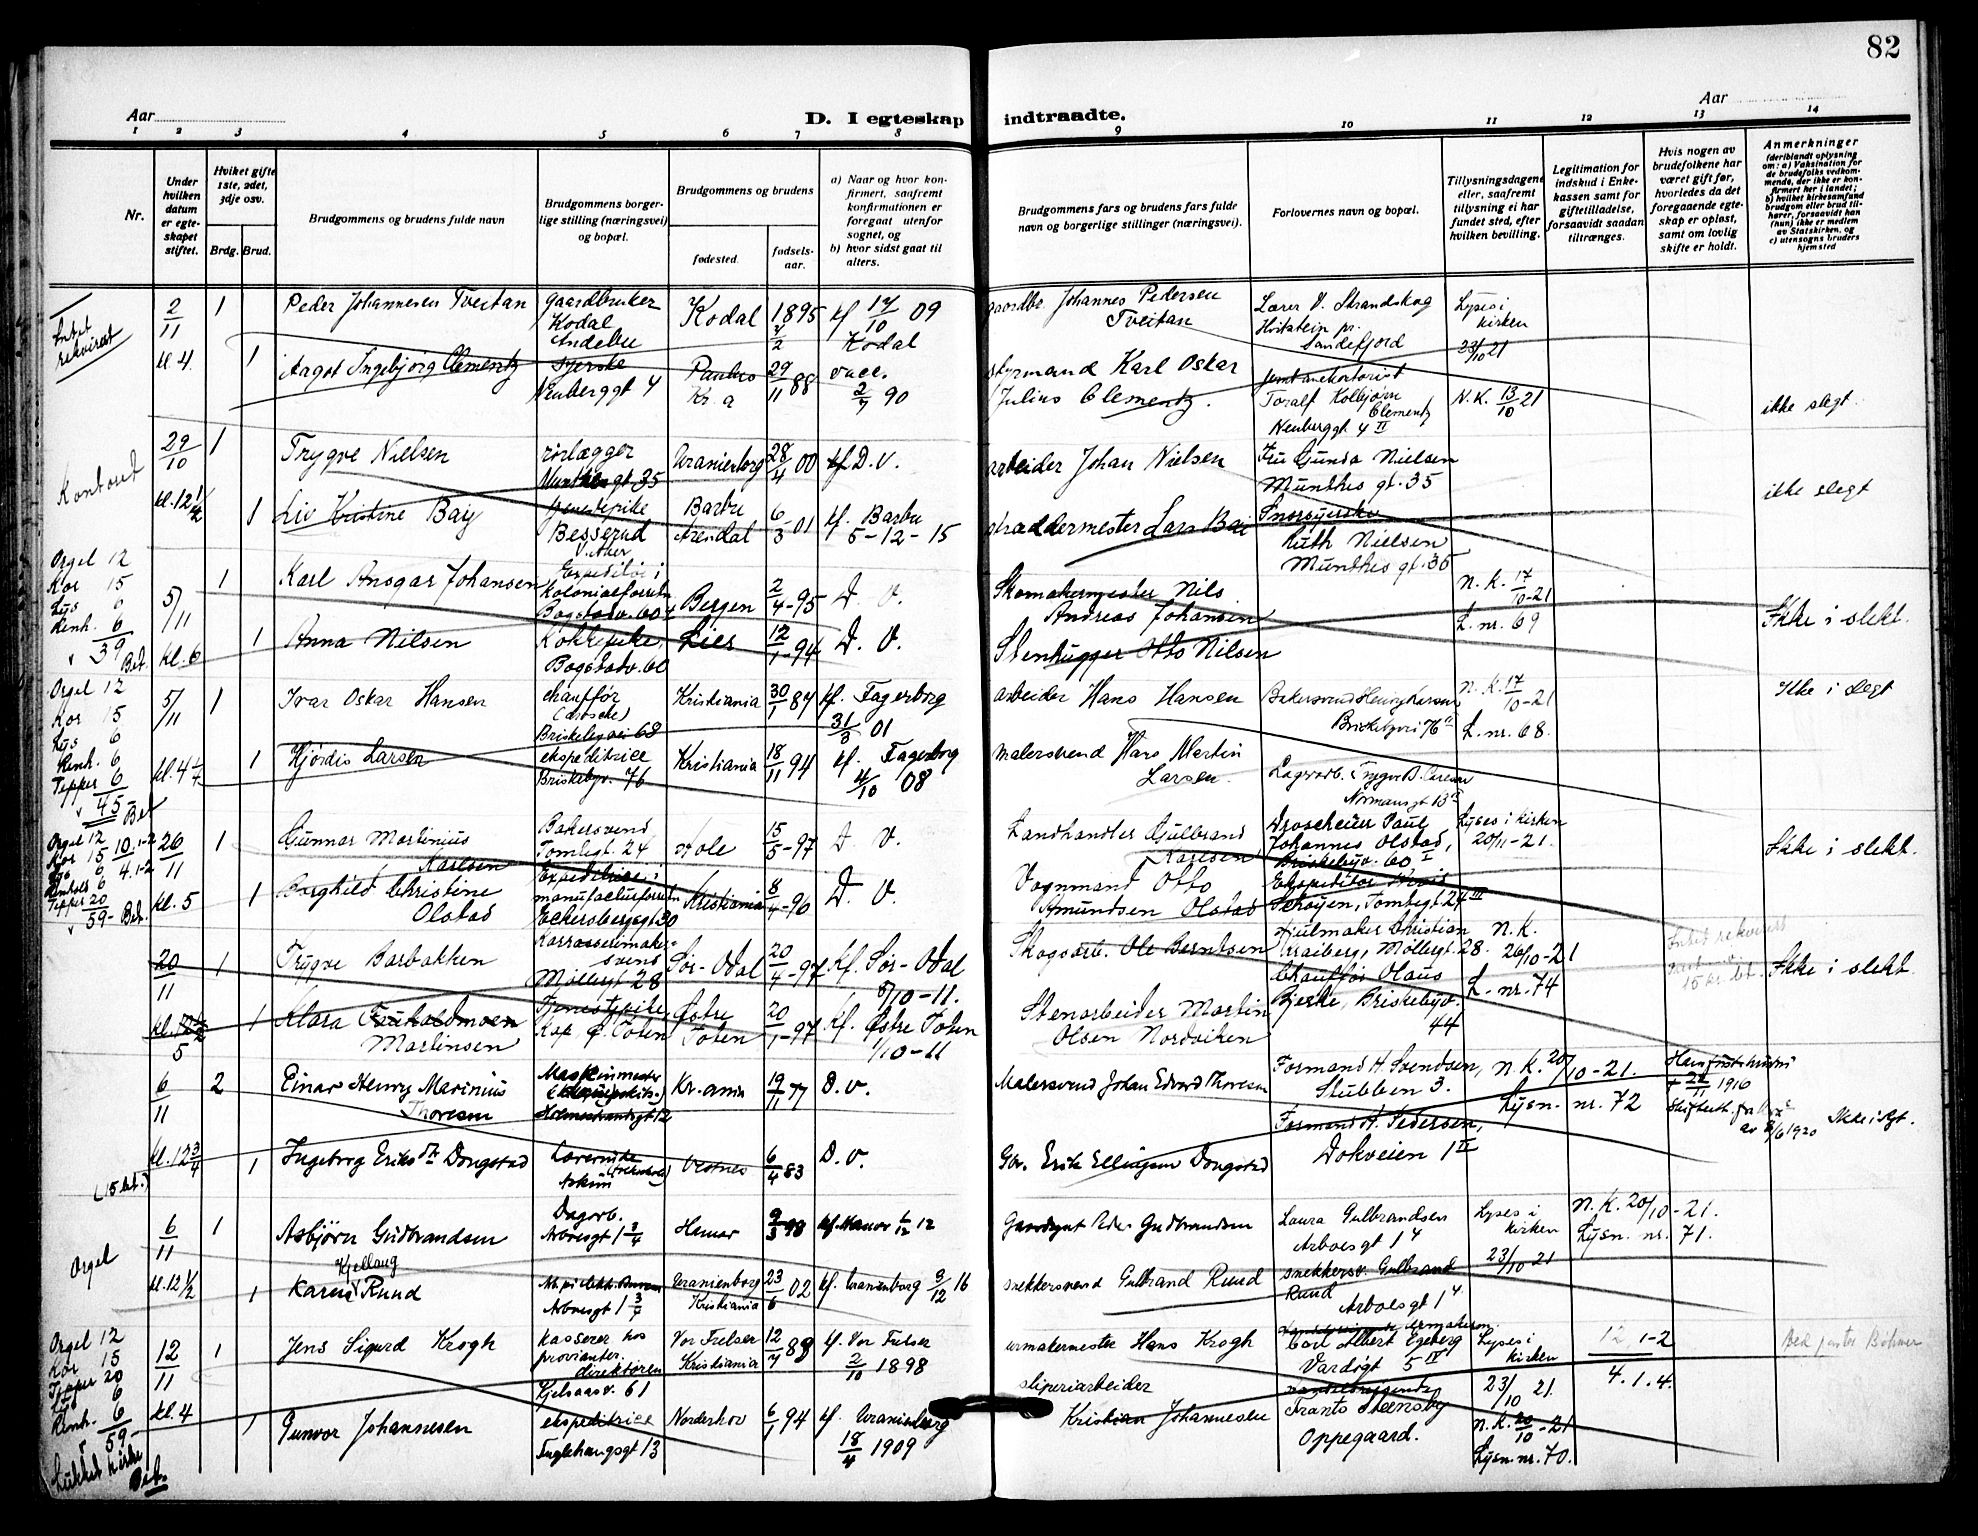 82
Aar
Aar
D. I egteskap
indtraadte.
1 2 3 4 5 6 7 8 9 10 11 12 13 14
Nr.
Under
hvilken
datum
er egte-
skapet
stiftet.
Hviket gifte
1ste, 2det,
3dje osv.
Brdg. Brud.
Brudgommens og brudens fulde navn
Brudgommens borger-
lige stilling (næringsvei)
og bopæl.
Brudgommens og brudens
fødested.
fødsels-
aar.
a) Naar og hvor kon-
firmert, saafremt
konfirmationen er
foregaat utenfor
sognet, og
b) hvor sidst gaat til
alters.
Brudgommens fars og brudens fars fulde
navn og borgerlige stillinger (næringsvei).
Forlovernes navn og bopæl.
Tillysningsdagene
eller, saafremt
tillysning ei har
fundet sted, efter
hvilken bevilling.
Legitimation for
indskud i Enke-
kassen samt for
giftetilladelse,
forsaavidt saadan
tiltrænges.
Hvis nogen av
brudefolkene har
været gift før,
hvorledes da det
foregaaende egte-
skap er opløst,
samt om lovlig
skifte er holdt.
Anmerkninger
(deriblandt oplysning
om: a) Vaksination for
de brudefolks vedkom-
mende, der ikke er kon-
firmert her i landet;
b) hvilket kirkesamfund
brudgom eller brud til-
hører, forsaavidt han
(hun) ikke er medlem
av Statskirken, og
c) utensogns bruders
hjemsted
Intet
rekvirert
2/11 1 Peder Johannesen Tveitan
gaardbruker
Kodal
Andebu
Kodal 1895 7/2
kf 17/10 09
Kodal
gaardbr. Johannes Pedersen
Tveitan
Lærer V. Strandskog
Hvitstein pr.
Sandefjord
Lyses i
kirken
23/10 21
kl. 4 1 Aagot Ingebjørg Clementz
syerske
Neuberggt 4
Paulus
Kr. a
29/11 88
vacc.
2/7 90
styrmand Karl Oskar
Julius Clementz.
Toralf Kolbjørn
Clementz
Neuberggt. 4 II
N.K. 13/10 21
ikke slegt
Kontoret
29/10 1 Trygve Nielsen
rørlægger
Munthesgt 35
Uranienborg 28/4 00 kf D.V.
arbeider Johan Nielsen
Fru Gunda Nielsen
Munthes gt. 35
ikke slegt
kl. 12 1/2 1 Liv Kristine Bay
Besserud
V. Aker
Barbu
Arendal
6/3 01
kf. Barbu
5-12-15
Lars Bai
Ruth Nielsen
Munthes gt. 35
Orgel 12
Kor 15
Lys 6
Renh. 6
39 Bet.
5/11 1 Karl Ansgar Johansen
Expeditør i
Kolonialforretn.
Bogstadv. 60
Bergen 2/4-95 D. V.
Skomakermester Nils
Andreas Johansen
N.K. 17/10-21
L. nr. 69
Ikke i slekt.
kl. 6 1 Anna Nilsen
Kokkepike,
Bogstadv. 60
Lier 12/1-94 D. V.
Stenhugger Otto Nilsen
Orgel 12
Kor 15
Lys 6
Renh. 6
Tepper 6
45- Bet
5/11 1 Ivar Oskar Hansen
chauffør
(drosche)
Briskebyvei 68
Kristiania 30/1 87
kf. Fagerborg
31/3 01
arbeider Hans Hansen
Bakersvend Henry Larsen
Briskebyvei 76
N.K. 17/10-21
L. nr. 68.
Ikke i slegt
1 Hjørdis Larsen
ekspeditrice
Briskebyv. 76
Kristiania 18/11 94
kf. Fagerborg
4/10 08
malersvend Hans Martin
Larsen.
Orgel 12
Kor 15
Lys 6
Renhold 6
Tepper 20
59- Bet.
26/11 1 Gunnar Martinius
Karlsen
Bakersvend
Tomtegt. 24
Hole 15/5-97 D. V.
Landhandler Gulbrand
Karlsen
Droscheeier Paul
Johannes Olstad,
Briskebyv. 60 I
Lyses i kirken
20/11-21.
Ikke i slekt.
kl. 5 1 Borghild Christine
Olstad
Expeditrice i
manufacturforretn.
Eckersbergsgt 30
Kristiania 8/4-96 D. V.
Vognmand Otto
Amundsen Olstad
Schøyen, Tomtegt. 24 III
20/11 1 Trygve Barbakken
Karrosserimaker-
svend
Møllergt 28
Sør-Odal 20/4-97
Kf. Sør-Odal
8/10-11.
Skogsarb. Ole Berntsen
Hjulmaker Christian
Kraiberg, Møllergt 28.
N.K.
26/10-21
L. nr. 74
Intet rekvirert
15 kr. bet.
Ikke i slekt.
1 Klara Fruhaldmoen
Martinsen
Tjenestepike,
Kap Ø. Toten
Østre
Toten
20/1-97
Kf. Østre Toten
1/10-11
Stenarbeider Martin
Olsen Nordviken
Chauffør Olaus
Bjerke, Briskebyv.
44
6/11 2 Einar Henry Marinius
Thoresen
Maskinmester
Holmestrandsgt 12
Kr.ania 19/11 77 D. v.
Malersvend Johan Edvard Thoresen
Formand H. Svendsen,
Stubben 3.
N.K. 20/10-21.
Lysn. nr. 72
Hans første hustru
+ 22/11 1916
av 8/6 1920
Ikke i slgt.
kl. 12 3/4
(15 bet.)
1 Ingeborg Eriksdtr Dongstad
Lærerinde
Askim
Vestnes 6/4 83 D. v.
Gbr. Erik Ellingsen Dongstad
Formand H. Pedersen,
Dokveien 1 II
Orgel
6/11 1 Asbjørn Gudbrandsen
Dagarb.
Arboesgt 1 3/4
9/3 98
Laura Gulbrandsen
Arboesgt 1 4
Lyses i
kirken
23/10 21
N.K. 20/10-21.
Lysn. nr. 71.
kl. 12 1/2 1 Karen Kjellaug Ruud
Arboesgt 1 3/4
Uranienborg
Kristiania
23/6 02
kf. Uranienborg 3/12 16
snekkersvend Gulbrand Ruud
snekkersv. Gulbrand
Ruud
Arboesgt 1 4
Orgel 12
Kor 15
Tepper 20
Lys 6
Renh. 6
59-
Lukket kirke
Bet.
12/11 1 Jens Sigurd Krogh
kasserer hos
proviantdirektøren
Kjelsaasv. 61
Vor Frelser
Kristiania
kf. Vor Frelser
2/10 1898
urmakermester Hans Krogh
Carl Albert Egeberg
Vardegt 5 IV
Lyses i
kirken
23/10 21.
12, 1-2
4. 1. 4.
kl. 4 1 Gunvor Johannesen
ekspeditrice
Fuglehaugsgt 13
Norderhov 6/1 94
kf. Uranienborg
18/4 1909
sliperiarbeider
Kristian Johannesen
Frants Steensby
Oppegaard.
N.K. 20/10-21
Lysn. nr. 70.